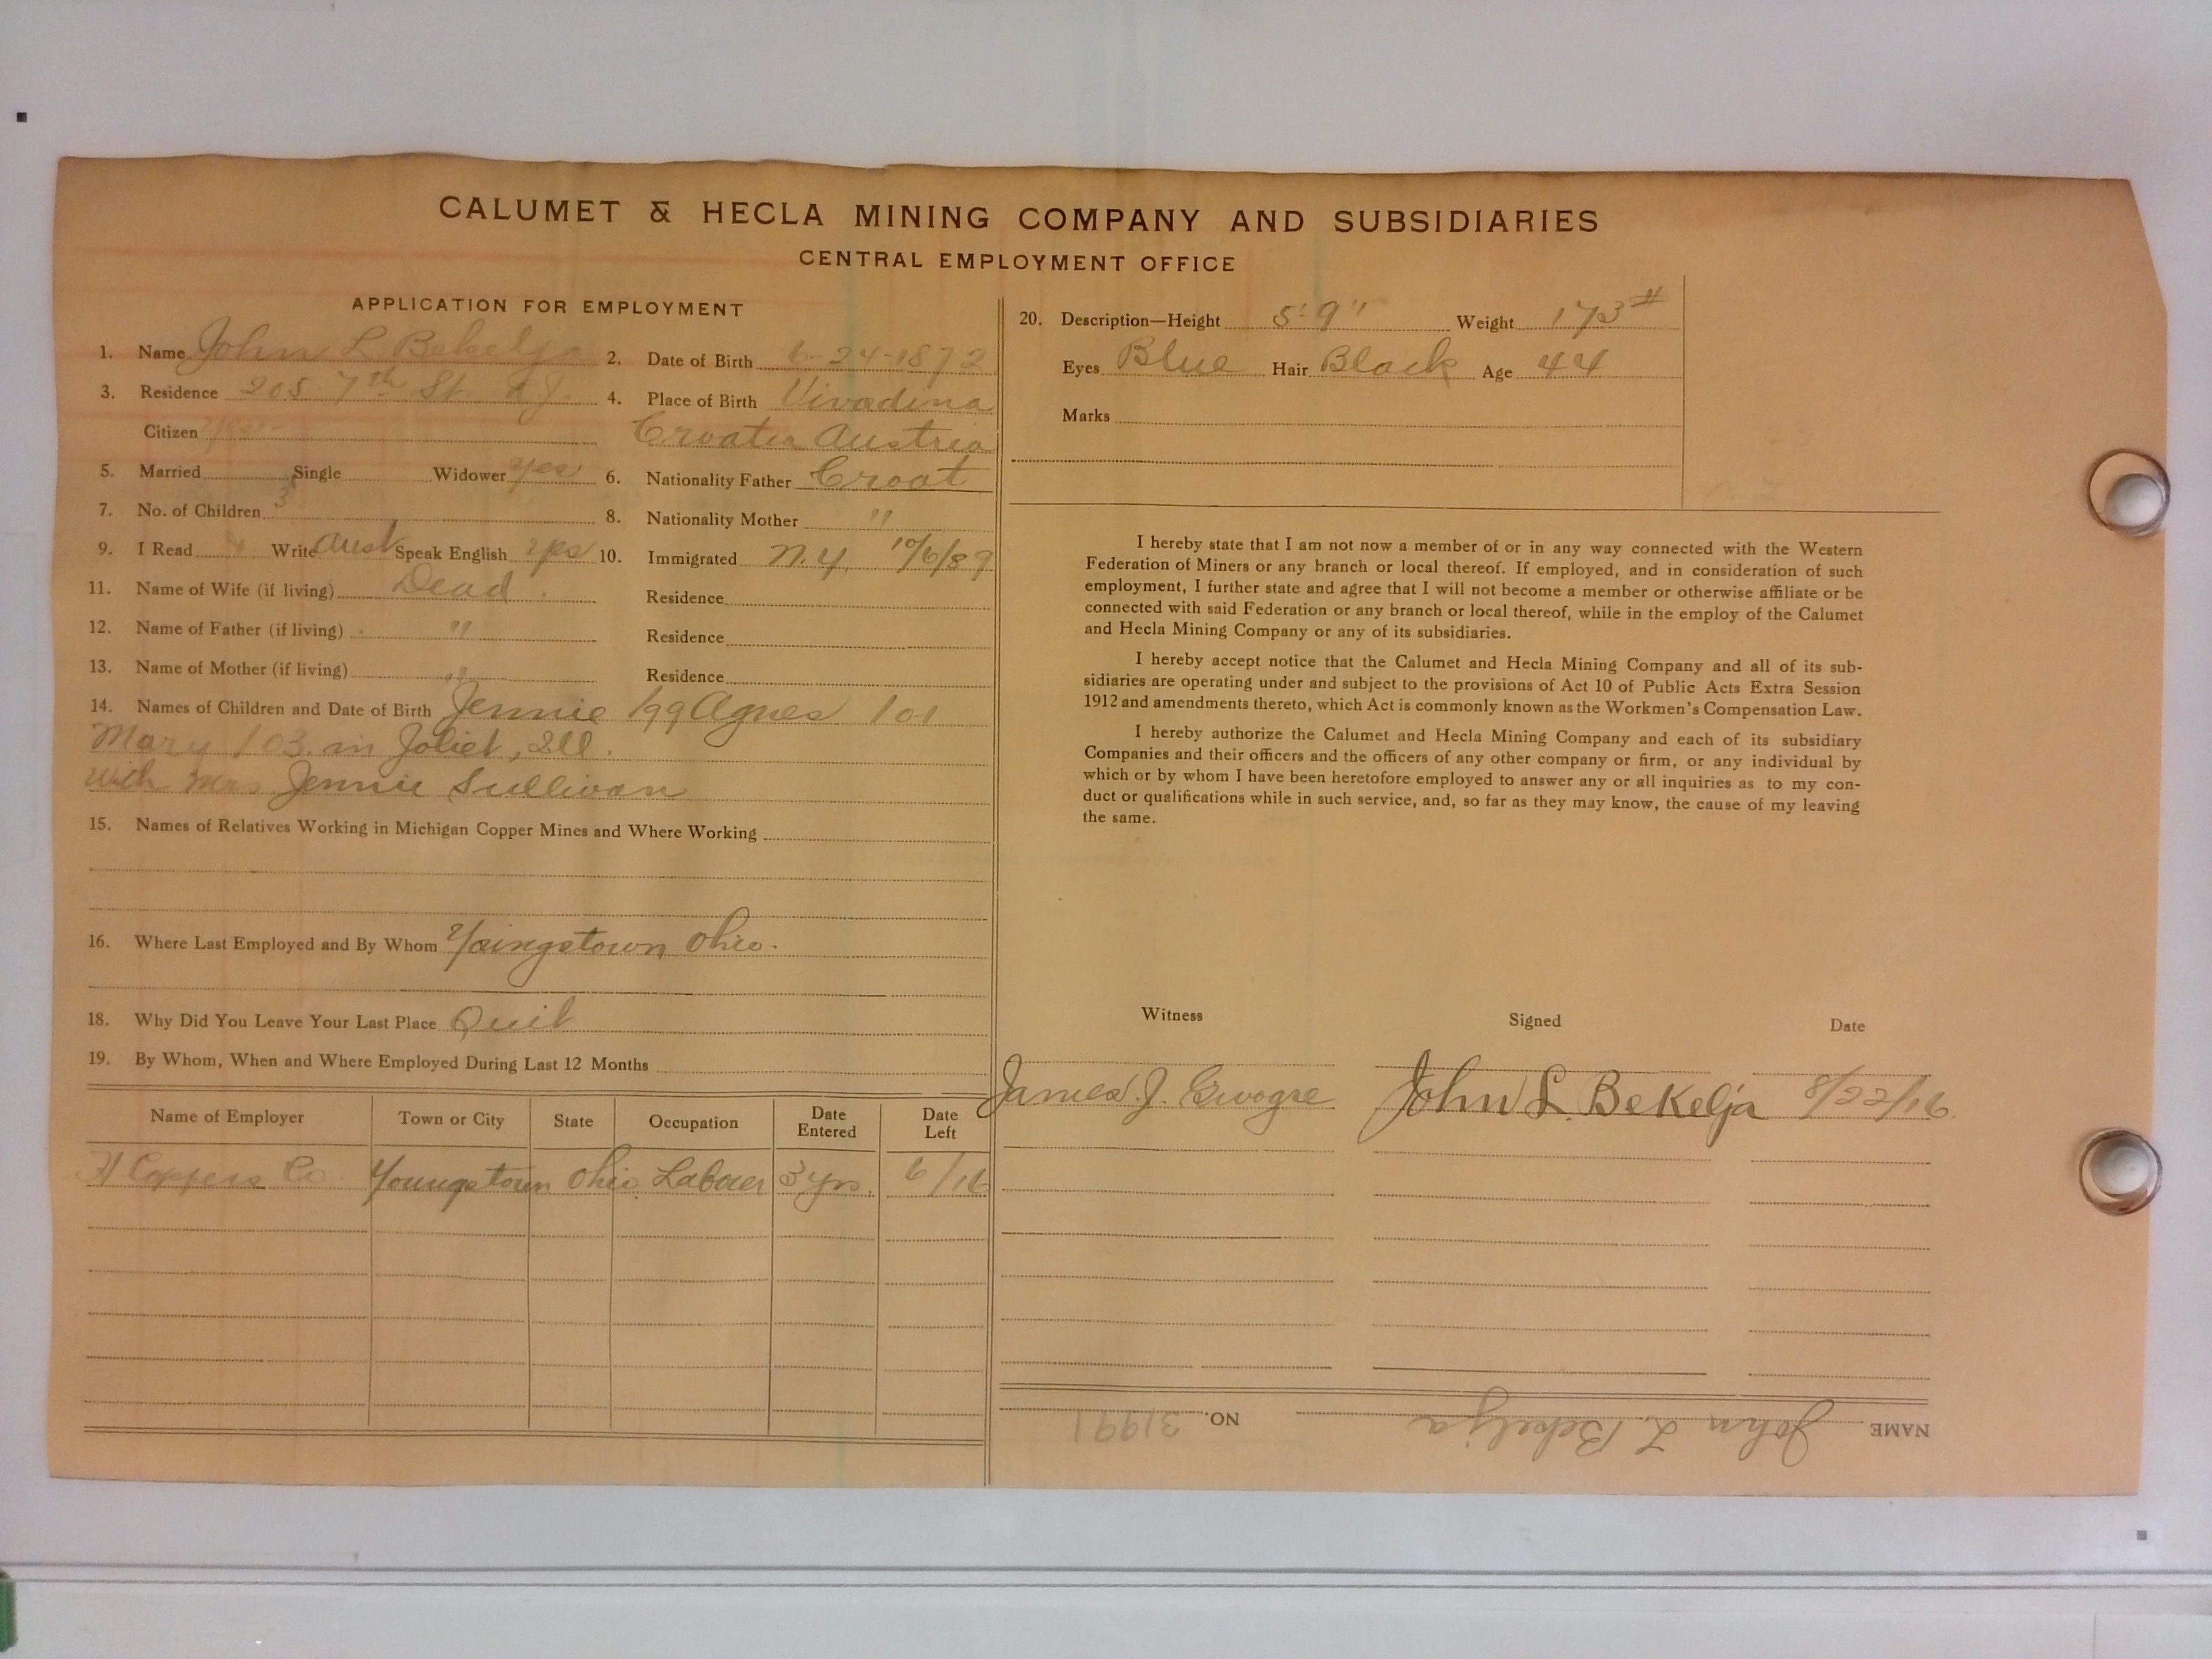 CALUMET & HECLA MINING COMPANY AND SUBSIDIARIES
CENTRAL EMPLOYMENT OFFICE
APPLICATION FOR EMPLOYMENT
1. Name John L Bekelja 2. Date of Birth 6-24-1872
3. Residence 205 7th St. 4. Place of Birth Vivodina
Citizen yes Croatia Austria
5. Married Single Widower yes 6. Nationality Father Croat
7. No. of Children 3 8. Nationality Mother "
9. I Read Write Aust Speak English yes 10. Immigrated N.Y. 10/6/89
11. Name of Wife (if living) Dead Residence
12. Name of Father (if living) " Residence
13. Name of Mother (if living) " Residence
14. Names of Children and Date of Birth Jennie 199 Agnes 101
Mary 103. in Joliet, Ill.
with Mrs Jennie Sullivan
15. Names of Relatives Working in Michigan Copper Mines and Where Working
16. Where Last Employed and By Whom Yoingstown Ohio.
18. Why Did You Leave Your Last Place Quit
19. By Whom, When and Where Employed During Last 12 Months
Name of Employer Town or City State Occupation Date Entered Date Left
H Coppers Co. Youngstown Ohio Laborer 3 yrs. 6/16
20. Description—Height 5'9" Weight 173#
Eyes Blue Hair Black Age 44
Marks
I hereby state that I am not now a member of or in any way connected with the Western
Federation of Miners or any branch or local thereof. If employed, and in consideration of such
employment, I further state and agree that I will not become a member or otherwise affiliate or be
connected with said Federation or any branch or local thereof, while in the employ of the Calumet
and Hecla Mining Company or any of its subsidiaries.
I hereby accept notice that the Calumet and Hecla Mining Company and all of its sub-
sidiaries are operating under and subject to the provisions of Act 10 of Public Acts Extra Session
1912 and amendments thereto, which Act is commonly known as the Workmen's Compensation Law.
I hereby authorize the Calumet and Hecla Mining Company and each of its subsidiary
Companies and their officers and the officers of any other company or firm, or any individual by
which or by whom I have been heretofore employed to answer any or all inquiries as to my con-
duct or qualifications while in such service, and, so far as they may know, the cause of my leaving
the same.
Witness Signed Date
James J. John L. Bekelja 8/22/16
NAME John L. Bekelja NO. 31991